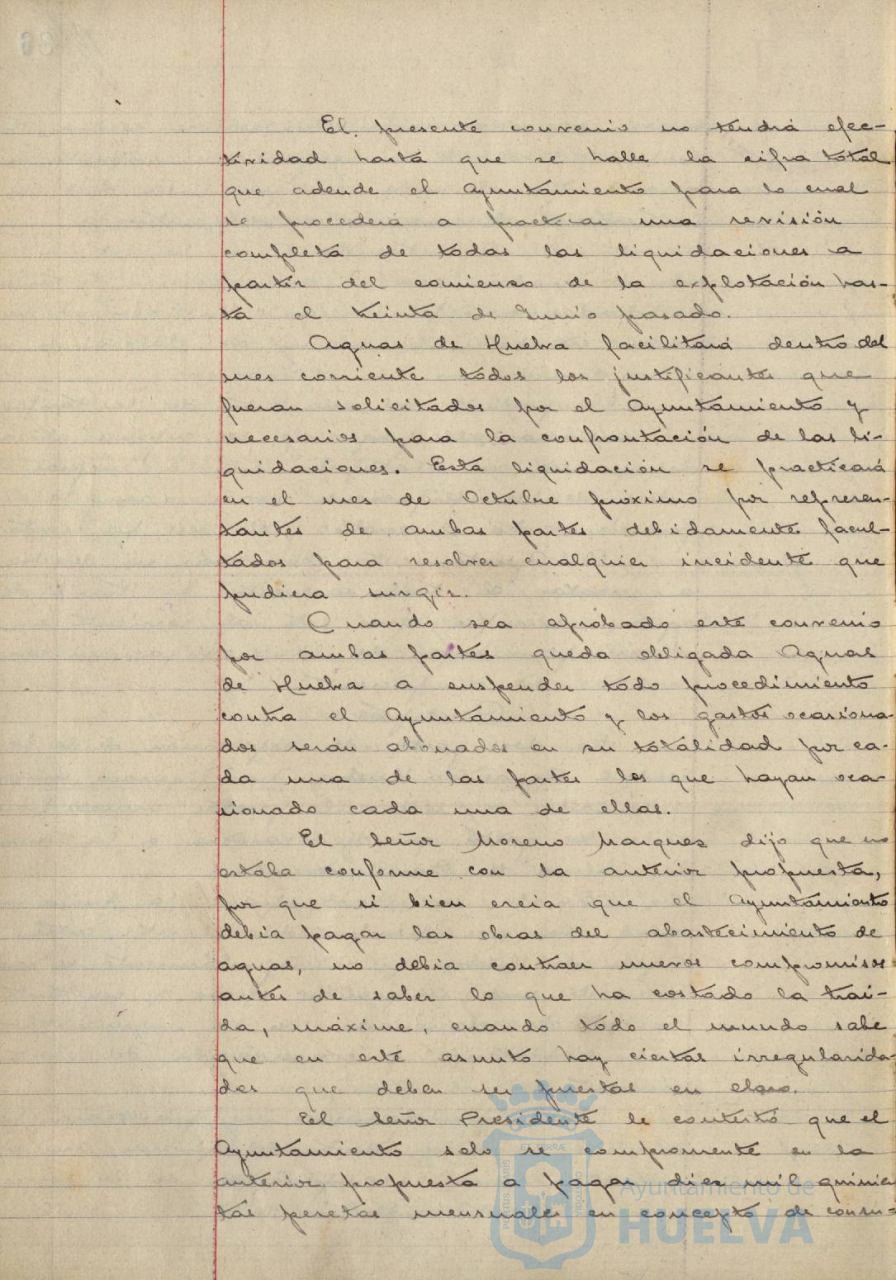 El presente convenio no tendrá efec-
tividad hasta que se halle la cifra total
que adende el Ayuntamiento para lo cual
se procederá a practicar una revisión
completa de todas las liquidaciones a
partir del comienzo de la explotación has-
ta el treinta de Junio pasado.
Aguas de Huelva facilitará dentro del
mes corriente todos los justificantes que
fueran solicitados por el Ayuntamiento y
necesarios para la confrontación de las li-
quidaciones. Esta liquidación se practicará
en el mes de Octubre próximo por represen-
tantes de ambas partes debidamente facul-
tados para resolver cualquier incidente que
pudiera surgir.
Cuando sea aprobado este convenio
por ambas partes queda obligada Aguas
de Huelva a suspender todo procedimiento
contra el Ayuntamiento y los gastos ocasiona-
dos serán abonados en su totalidad por ca-
da una de las partes los que hayan oca-
sionado cada una de ellas.
El Señor Moreno Marquez dijo que no
estaba conforme con la anterior propuesta,
por que si bien creia que el Ayuntamiento
debia pagar las obras del abastecimiento de
aguas, no debia contraer nuevos compromisos
antes de saber lo que ha costado la trai-
da, máxime, cuando todo el mundo sabe
que en este asunto hay ciertas irregularida-
des que deben ser puestas en claro.
El Señor Presidente le contestó que el
Ayuntamiento solo se compromente en la
anterior propuesta a pagar diez mil quinien
tas pesetas mensuales en concepto de consu-
Ayuntamiento de
HUELVA